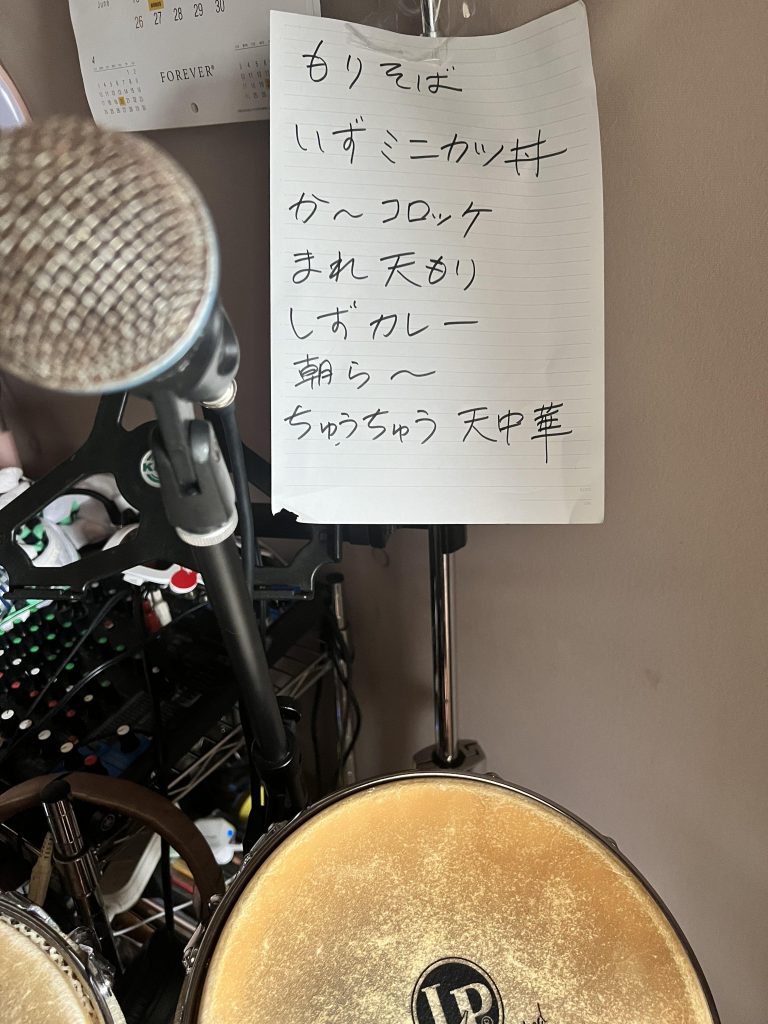 June
26 27 28 29 30
FOREVER®
もりそば
いずミニカツ丼
か〜コロッケ
まれ 天もり
しずカレー
朝ら〜
ちゅうちゅう 天中華
LP